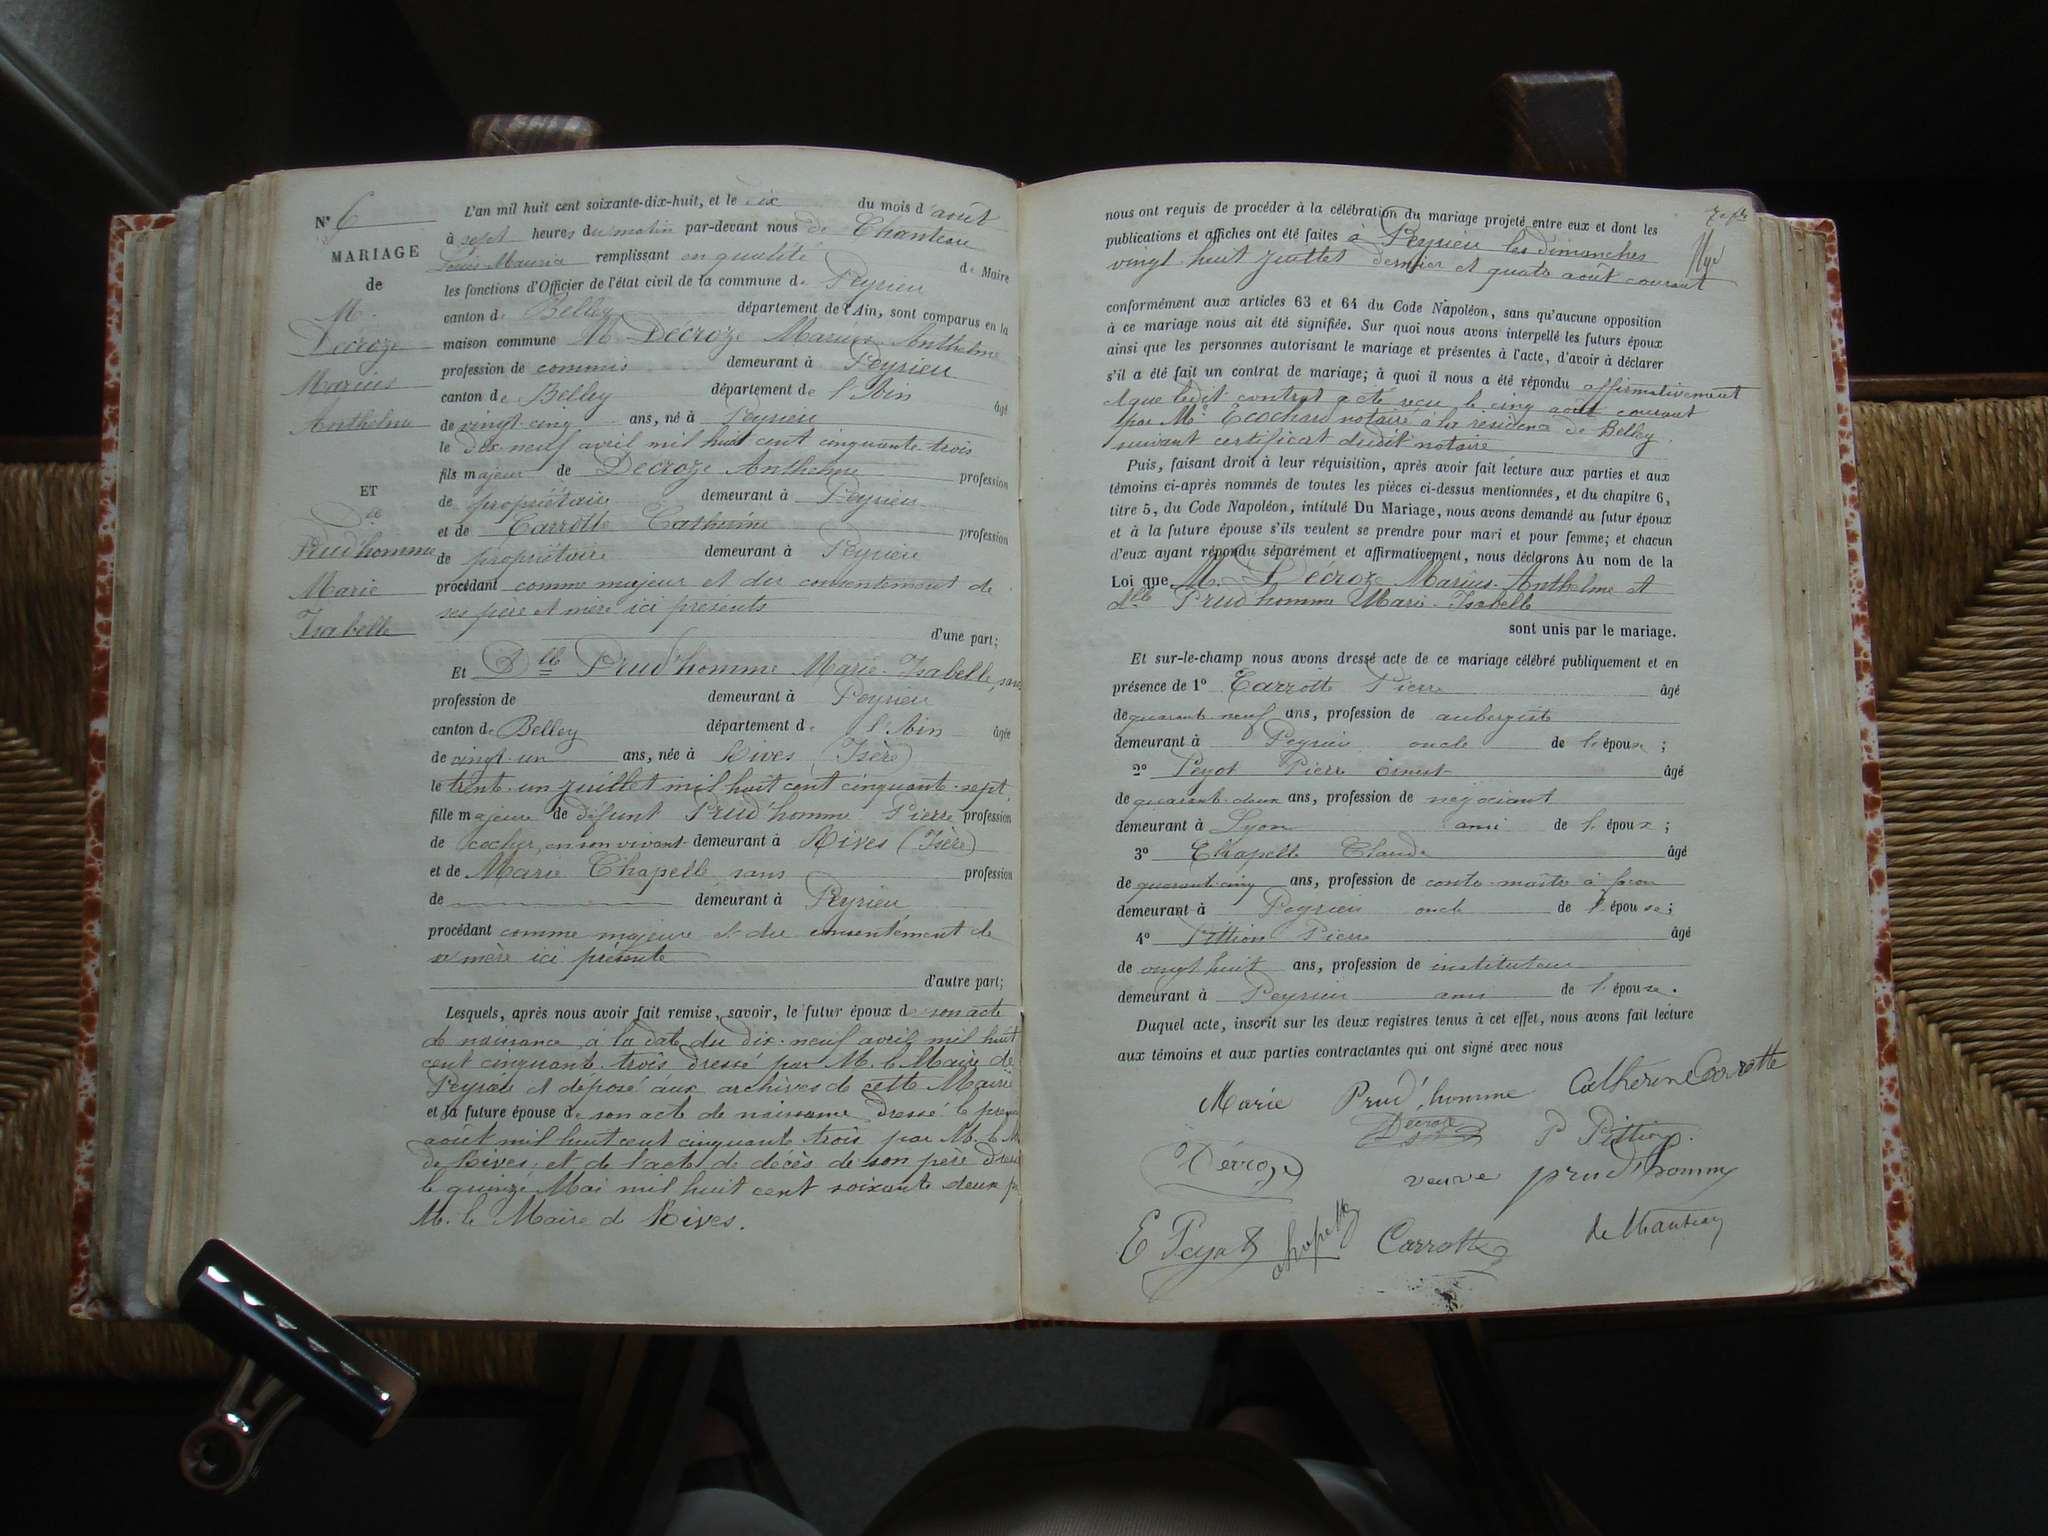 N° 6
MARIAGE
de
M.
Décroze
Marius
Anthelme
ET
Dlle
Prud'homme
Marie
Isabelle
L'an mil huit cent soixante-dix-huit, et le dix du mois d'août
à sept heures du matin par-devant nous de Chanteau
Louis Maurice remplissant en qualité de Maire
les fonctions d'Officier de l'état civil de la commune de Peyrieu
canton de Belley département de l'Ain, sont comparus en la
maison commune M. Décroze Marius Anthelme
profession de commis demeurant à Peyrieu
canton de Belley département de l'Ain âgé
de vingt-cinq ans, né à Peyrieu
le dix-neuf avril mil huit cent cinquante-trois
fils majeur de Décroze Anthelme profession
de propriétaire demeurant à Peyrieu
et de Carrotte Catherine profession
de propriétaire demeurant à Peyrieu
procédant comme majeur et du consentement de
ses père et mère ici présents
d'une part;
Et Dlle Prud'homme Marie-Isabelle, sans
profession de demeurant à Peyrieu
canton de Belley département de l'Ain âgée
de vingt-un ans, née à Rives (Isère)
le trente-un juillet mil huit cent cinquante-sept
fille majeure de défunt Prud'homme Pierre profession
de cocher, en son vivant demeurant à Rives (Isère)
et de Marie Chapelle sans profession
de demeurant à Peyrieu
procédant comme majeure et du consentement de
sa mère ici présente
d'autre part;
Lesquels, après nous avoir fait remise, savoir, le futur époux de son acte
de naissance, à la date du dix-neuf avril mil huit
cent cinquante-trois dressé par M. le Maire de
Peyrieu et déposé aux archives de cette Mairie
et la future épouse de son acte de naissance dressé le premier
août mil huit cent cinquante trois par M. le M
de Rives, et de l'acte de décès de son père dressé
le quinze Mai mil huit cent soixante deux p
M. le Maire de Rives.
nous ont requis de procéder à la célébration du mariage projeté entre eux et dont les
publications et affiches ont été faites à Peyrieu les dimanches
vingt-huit juillet dernier et quatre août courant
conformément aux articles 63 et 64 du Code Napoléon, sans qu'aucune opposition
à ce mariage nous ait été signifiée. Sur quoi nous avons interpellé les futurs époux
ainsi que les personnes autorisant le mariage et présentes à l'acte, d'avoir à déclarer
s'il a été fait un contrat de mariage; à quoi il nous a été répondu affirmativement
et que ledit contrat a été reçu le cinq août courant
par Me Ecochard notaire à la résidence de Belley
suivant certificat dudit notaire
Puis, faisant droit à leur réquisition, après avoir fait lecture aux parties et aux
témoins ci-après nommés de toutes les pièces ci-dessus mentionnées, et du chapitre 6,
titre 5, du Code Napoléon, intitulé Du Mariage, nous avons demandé au futur époux
et à la future épouse s'ils veulent se prendre pour mari et pour femme; et chacun
d'eux ayant répondu séparément et affirmativement, nous déclarons Au nom de la
Loi que M. Décroze Marius-Anthelme et
Dlle Prud'homme Marie-Isabelle
sont unis par le mariage.
Et sur-le-champ nous avons dressé acte de ce mariage célébré publiquement et en
présence de 1° Carrotte Pierre âgé
de quarante-neuf ans, profession de aubergiste
demeurant à Peyrieu oncle de l'époux;
2° Peyot Pierre Ernest âgé
de quarante-deux ans, profession de négociant
demeurant à Lyon ami de l'époux;
3° Chapelle Claude âgé
de quarante-cinq ans, profession de contre-maître à
demeurant à Peyrieu oncle de l'épouse;
4° Pittion Pierre âgé
de vingt huit ans, profession de instituteur
demeurant à Peyrieu ami de l'épouse.
Duquel acte, inscrit sur les deux registres tenus à cet effet, nous avons fait lecture
aux témoins et aux parties contractantes qui ont signé avec nous
Marie Prud'homme Catherine Carrotte
Décroze P Pittion
Décroze veuve prud'homme
E Peyot Chapelle Carrotte de Chanteau